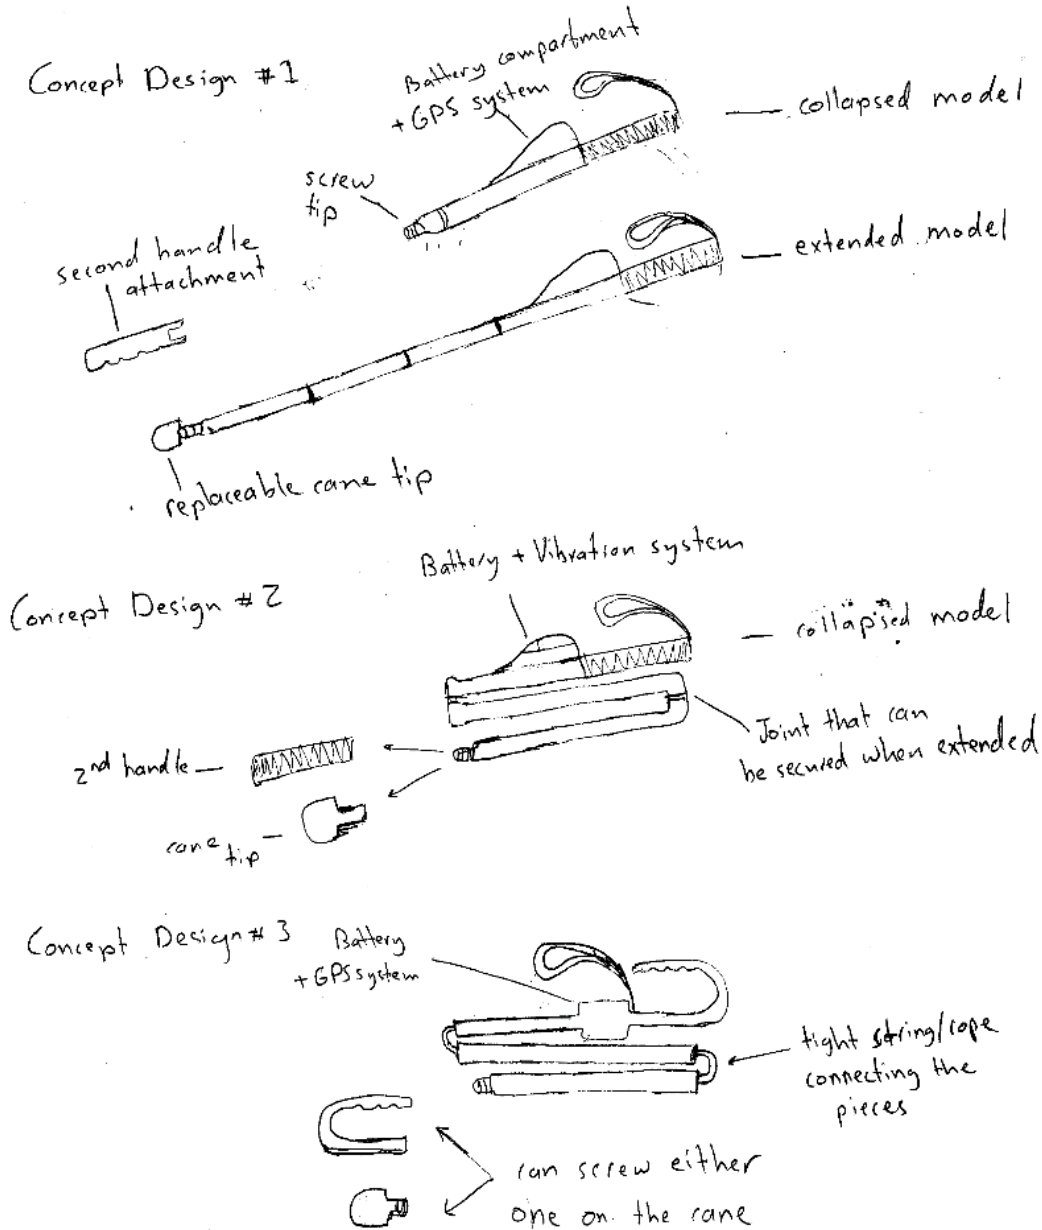 Concept Design #1
Battery compartment
+ GPS system
collapsed model
screw
tip
extended model
second handle
attachment
replaceable cane tip
Battery + Vibration system
Concept Design #2
collapsed model
Joint that can
be secured when extended
2nd handle
cane tip
Concept Design #3
Battery
+ GPS system
tight string/rope
connecting the
pieces
can screw either
one on the cane